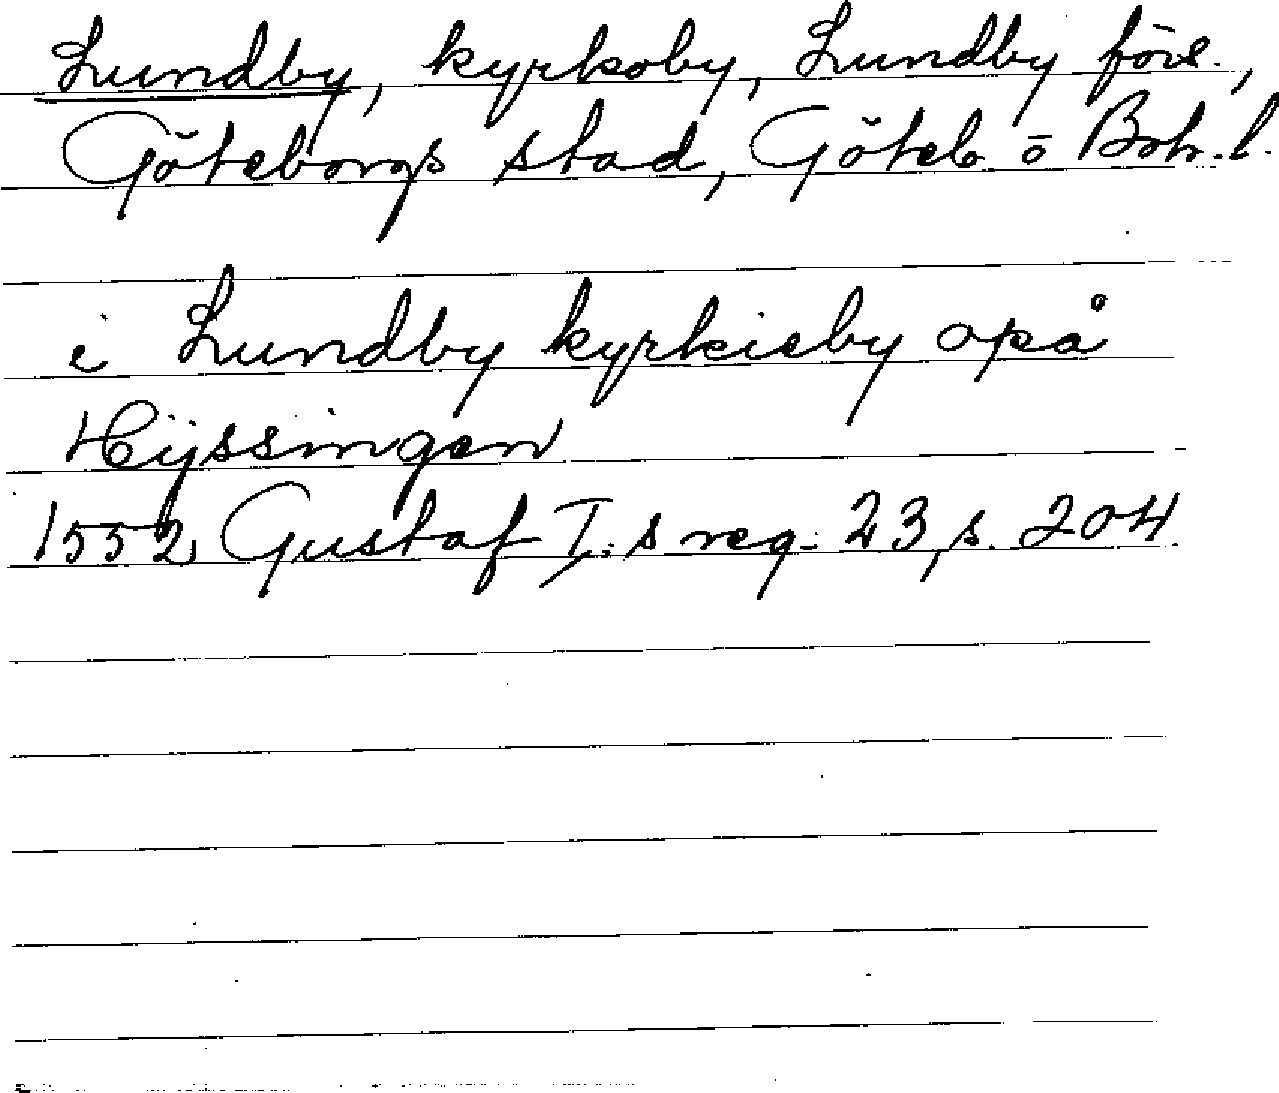 Lundby, kyrkoby, Lundby förs.,
Göteborgs stad, Göteb o Boh. l.
i Lundby kyrkieby opå
Hÿssingen
1552 Gustaf I:s reg. 23, s. 204.